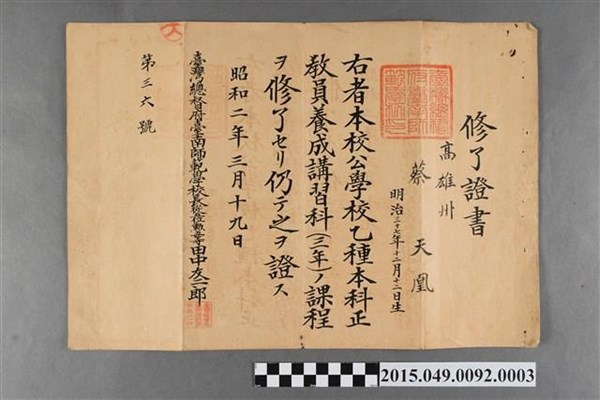 修了證書
高雄州
蔡天凰
明治三十七年十二月十二日生
右者本校公學校乙種本科正
教員養成講習科(三年)ノ課程
ヲ修了セリ仍テ之ヲ證ス
昭和二年三月十九日
臺灣總督府臺南師範學校長從五位勲五等田中友二郎
第三六號
2015.049.0092.0003